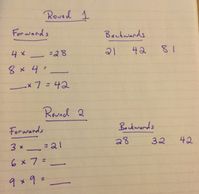 Round 1
Forwards Backwards
4 × __ = 28 21 42 81
8 × 4 = __
__ × 7 = 42
Round 2
Forwards Backwards
3 × __ = 21 28 32 42
6 × 7 = __
9 × 9 = __